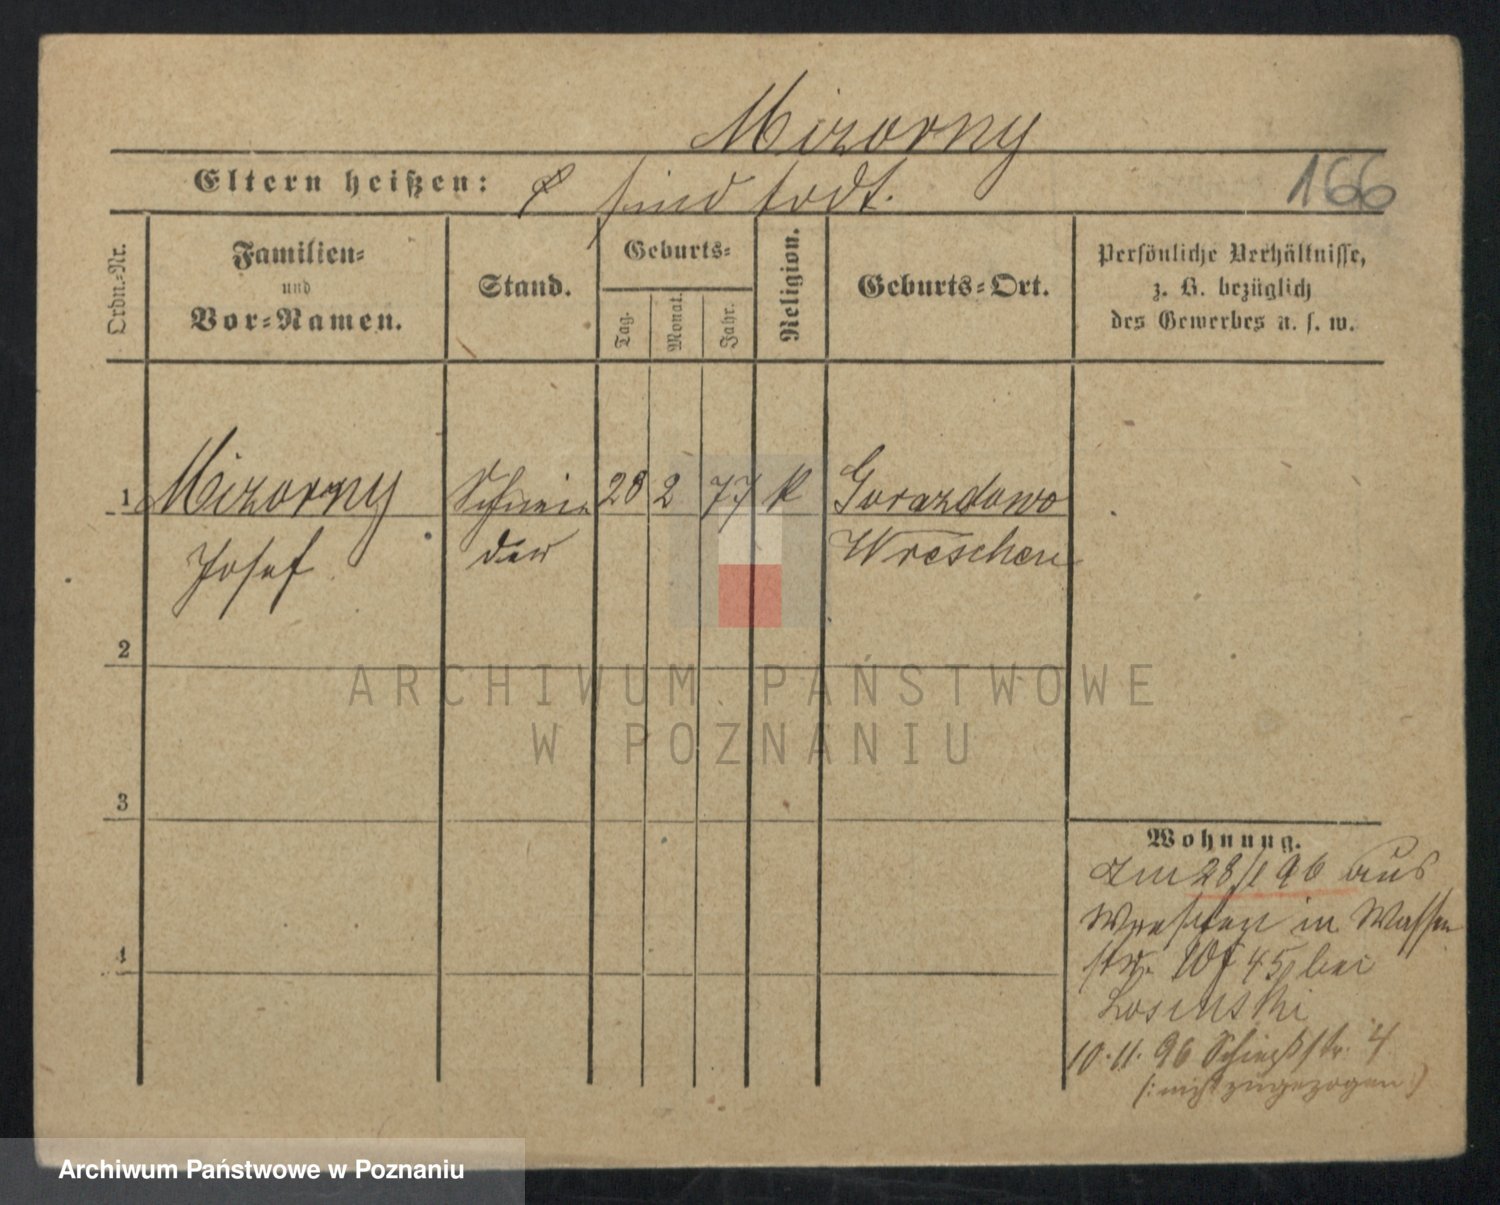 Mizorny
Eltern heißen: sind todt.
166
Ordn.-Nr.
Familien-
und
Vor-Namen.
Stand.
Geburts-
Tag.
Monat.
Jahr.
Religion.
Geburts-Ort.
Persönliche Verhältnisse,
z. B. bezüglich
des Gewerbes u. s. w.
1 Mizorny Schnei 28 2 77 k Gorazdowo
Josef der Wreschen
2
3
4
Wohnung.
Am 28/ 96 aus
Wreschen in Wasser
str. 45 bei
Losinski
10.11.96 Schießstr. 4
(: nicht zugezogen :)
ARCHIWUM PAŃSTWOWE
W POZNANIU
Archiwum Państwowe w Poznaniu